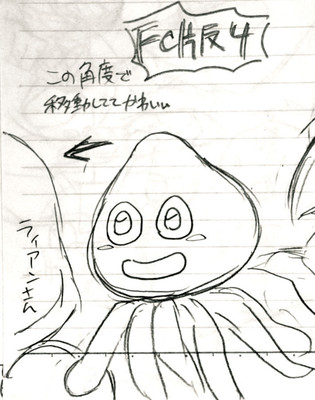 FC版4
この角度で
移動しててかわいい
ライアンさん